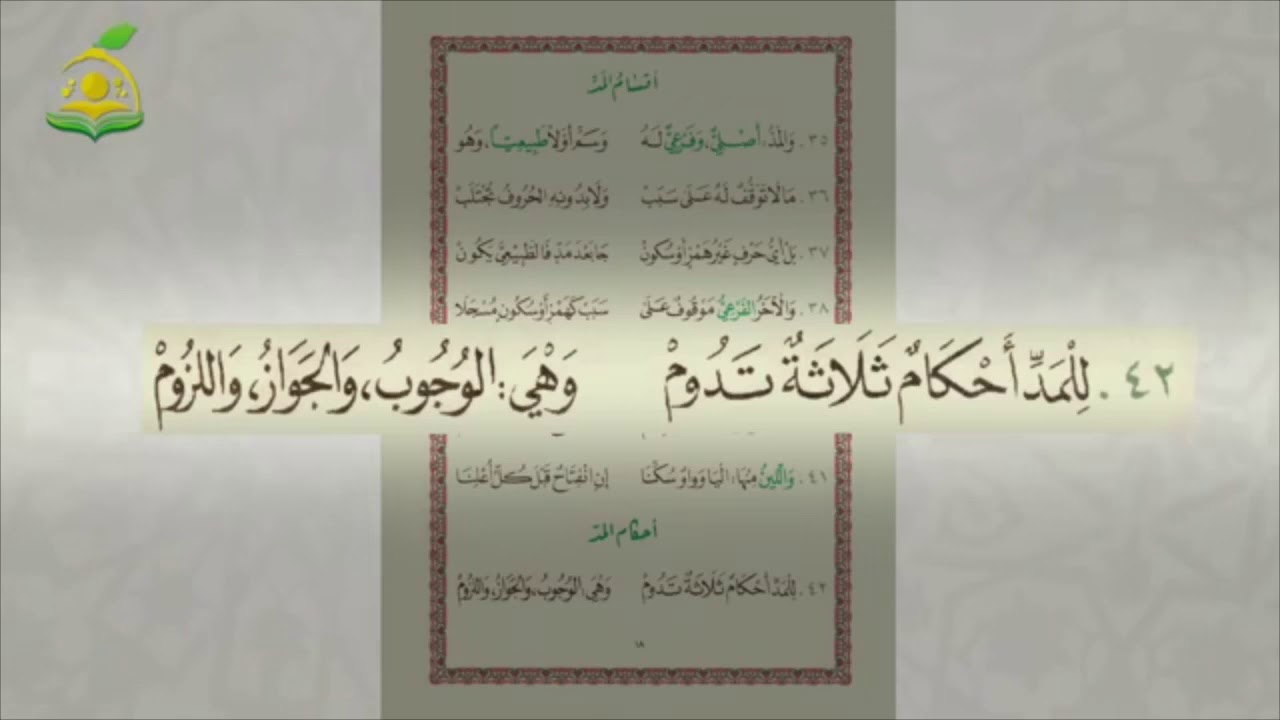 أقسام المد
٣٥ . وَالمَدُّ: أَصْلِيٌّ، وَفَرْعِيٌّ لَهُ وَسَمِّ أَوَّلاً طَبِيعِيًّا، وَهُو
٣٦ . مَا لَا تَوَقُّفٌ لَهُ عَلَى سَبَبْ وَلَا بِدُونِهِ الحُرُوفُ تُجْتَلَبْ
٣٧ . بَلْ أَيُّ حَرْفٍ غَيْرُ هَمْزٍ أَوْ سُكُونْ جَا بَعْدَ مَدٍّ فَالطَّبِيعِيَّ يَكُونْ
٣٨ . وَالْآخَرُ الفَرْعِيُّ مَوْقُوفٌ عَلَى سَبَبْ كَهَمْزٍ أَوْ سُكُونٍ مُسْجَلَا
٤٢ . لِلْمَدِّ أَحْكَامٌ ثَلَاثَةٌ تَدُومْ وَهْيَ: الْوُجُوبُ، وَالْجَوَازُ، وَاللزُومْ
٤١ . وَاللِّينُ مِنْهَا: الْيَا وَوَاوٌ سُكِّنَا إِنِ انْفِتَاحٌ قَبْلَ كُلٍّ أُعْلِنَا
أحكام المد
٤٢ . لِلْمَدِّ أَحْكَامٌ ثَلَاثَةٌ تَدُومْ وَهْيَ: الْوُجُوبُ، وَالْجَوَازُ، وَاللزُومْ
١٨